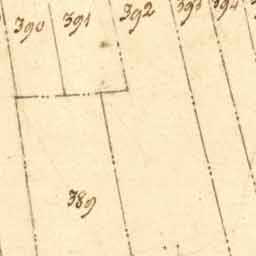 390 391 392 393 394
389